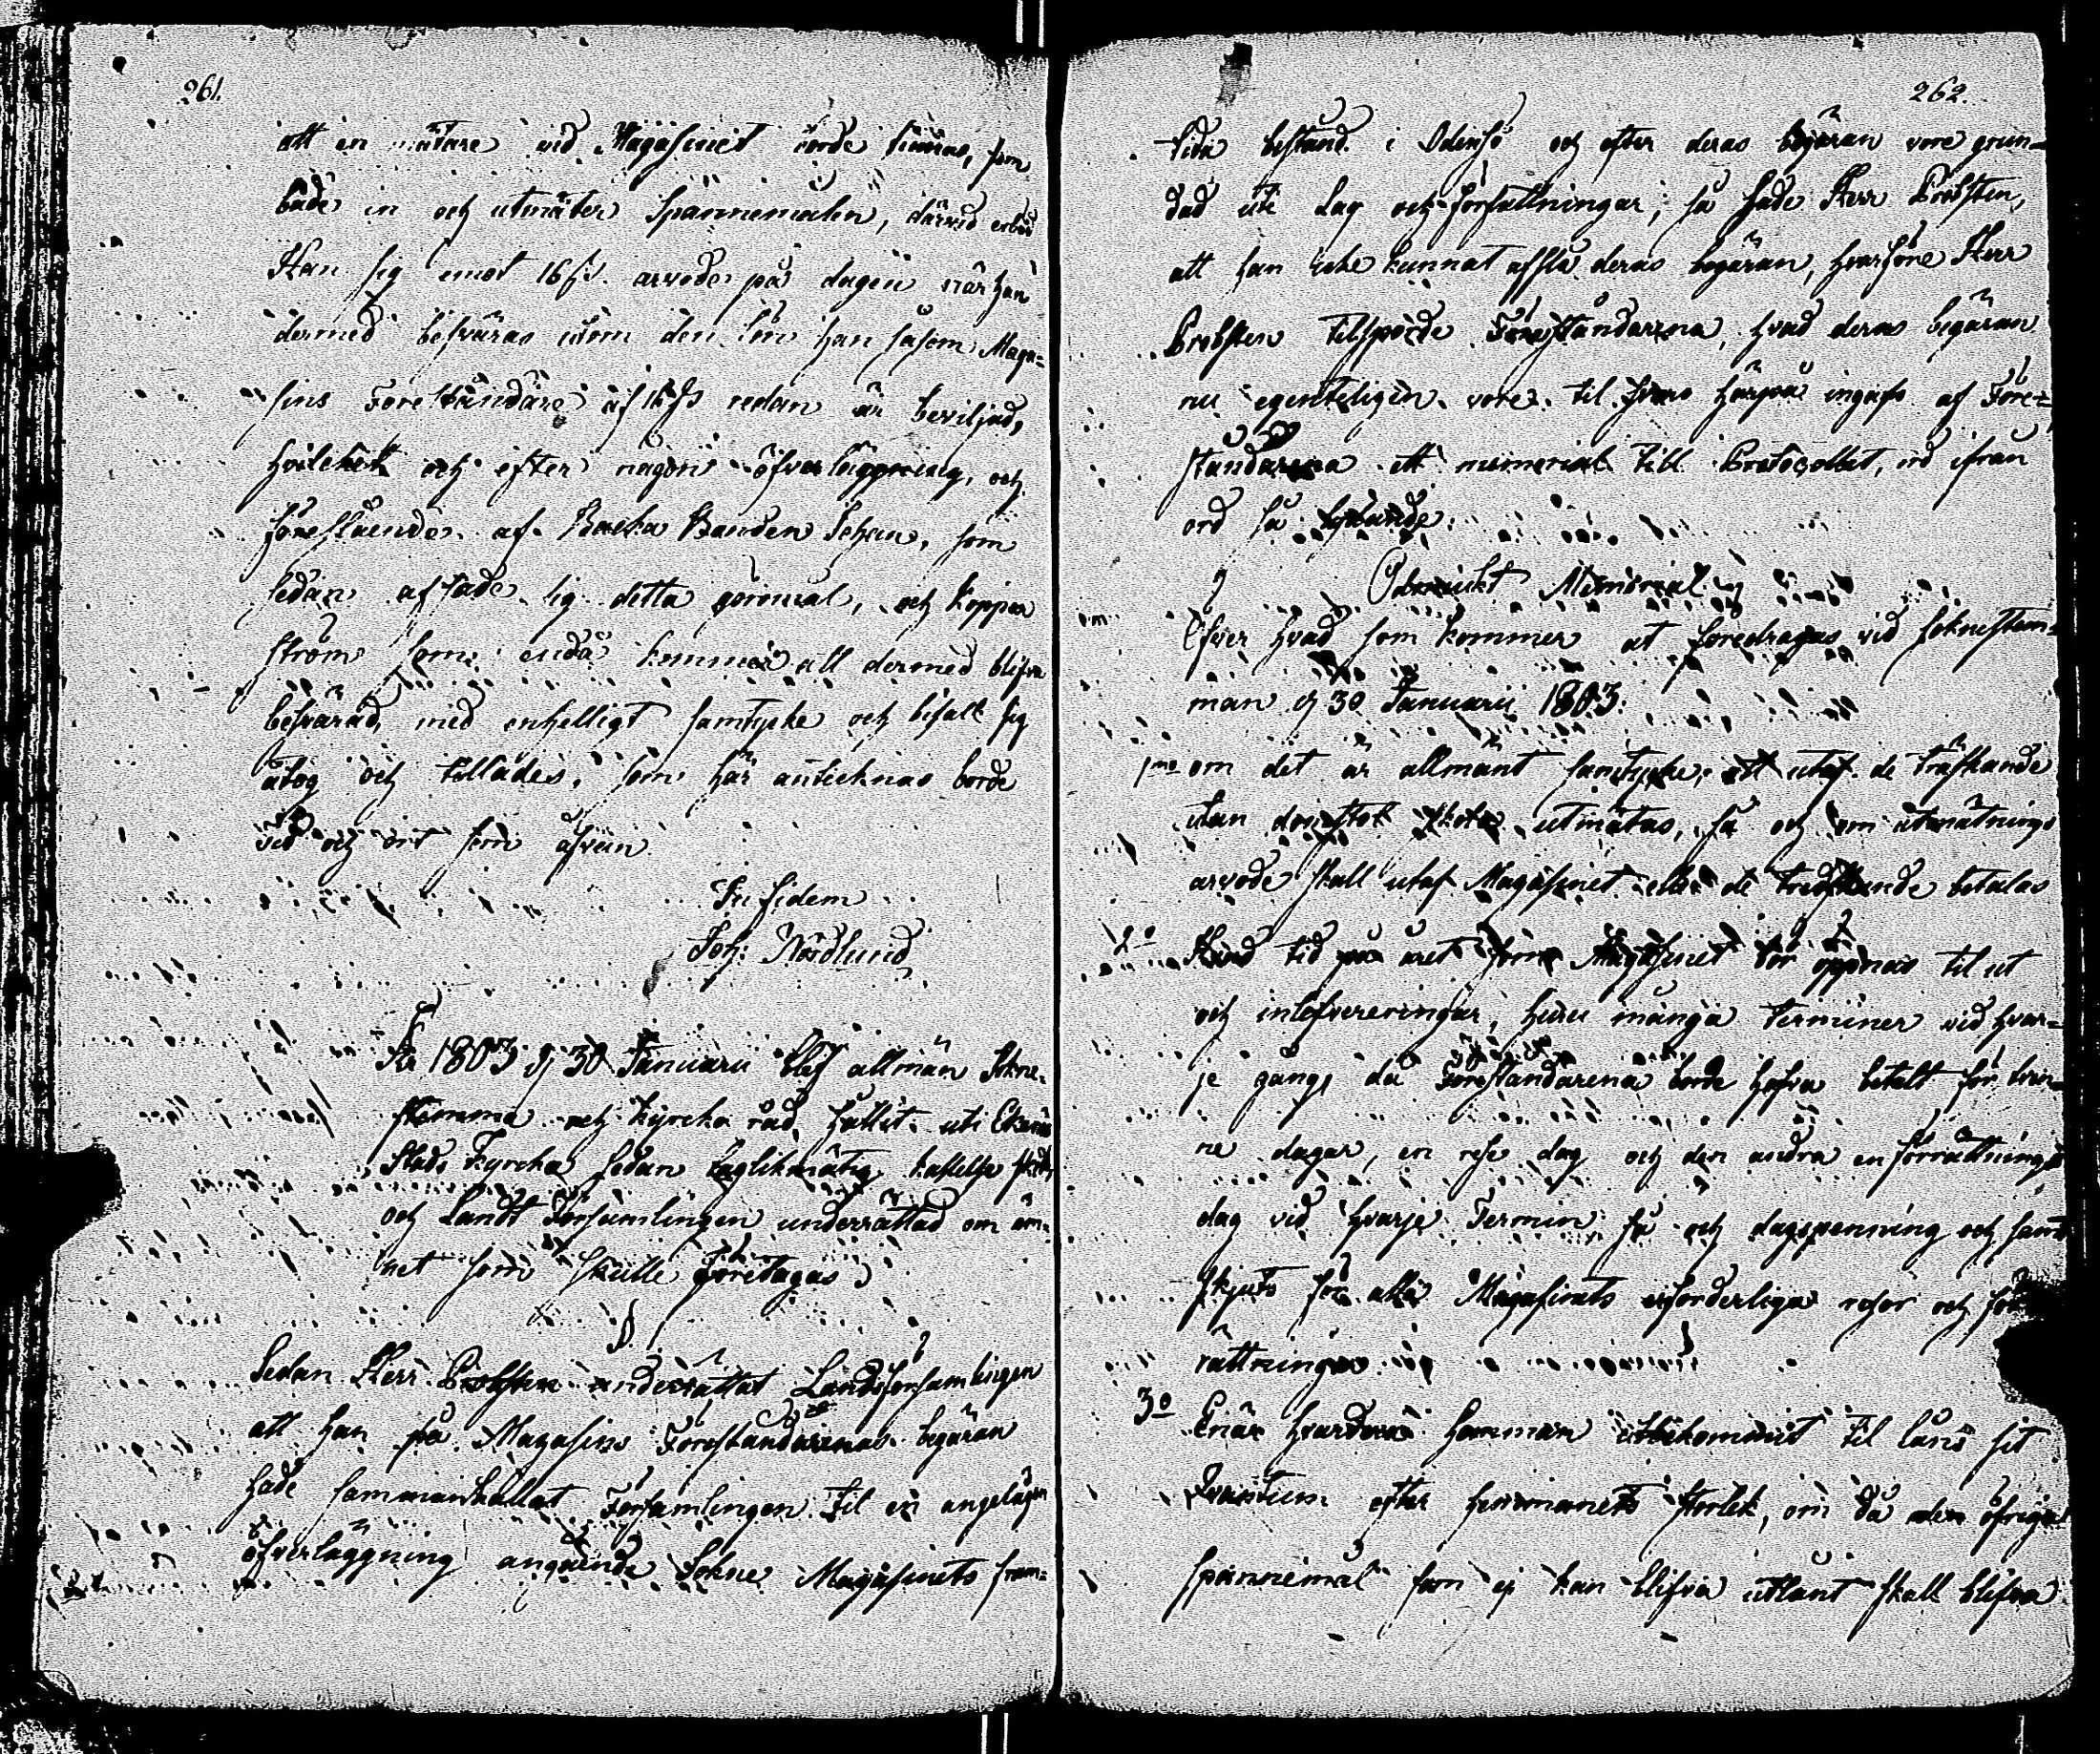 261.
att en mätare vid Magasinet borde finnas, som
både in och utmäter Spannemålen, därvid erböd
Han sig emot 16 s. arvode på dagen när han
dermed besväras utom den lön han såsom Maga-
sins Föreståndare af redan är beviljad,
hvilchet och efter någon öfverläggning, och
föreslående af Backa Johan, som
sedan afsade sig detta göromål, och Koppar
ström som ändå kommer att dermed blifva
besvärad, med enhelligt samtycke och bifall sig
åtog och tillades, som här antecknas borde
tid och ort som ofvan
In fidem
Joh: Nordlund
År 1803 d 30 Januarii blef allmän Sokne-
stämma och Kyrcko råd hållit uti Ekenäs
Stads Kyrcka sedan laglikmätig kallelse skedt,
och Landt Församlingen underrättad om äm-
net som skulle företagas
§.
Sedan Herr Probsten underrättat Landsförsamlingen
att han på Magasins Föreståndarenas begäran
hade sammankallat Församlingen til en angelägen
öfverläggning angående Sokne Magasinets fram-
262.
tida bestånd i och efter deras begäran vore grun-
dad uti Lag och författningar, så hade Herr Probsten,
att han icke kunnat afslå deras begäran, hvarföre Herr
Probsten tilsporde Föreståndarena, hvad deras begäran
nu egenteligen vore. til svars härpå ingafs af Före-
ståndarena ett memorial till Protocollet, ord ifrån
ord så lydande:
Ödmiukt Memorial
Öfver hvad som kommer at föredragas vid soknestäm-
man d 30 Januarii 1803.
1mo om det är allmänt samtycke, att utaf de träskande
utan skola utmätas, så och om utmätnings
arvode skall utaf Magasinet eller de betalas
2o Hvad tid på året som Magasinet bör öppnas til ut
och inlefvereringar, huru många Terminer vid hvar-
je gång, då Föreståndarena borde hafva betalt för
ne dagar, en rese dag och den andra en förrättnings
dag vid hvarje Termin så och dagspenning och samt
skjuts för alla Magasinets erforderliga resor och för-
rättningar
3o Enär hvardera hemman utbekommit til låns sit
Quantum efter hemmanets storlek, om då den öfriga
spannemål som ej kan blifva utlånt skall blifva